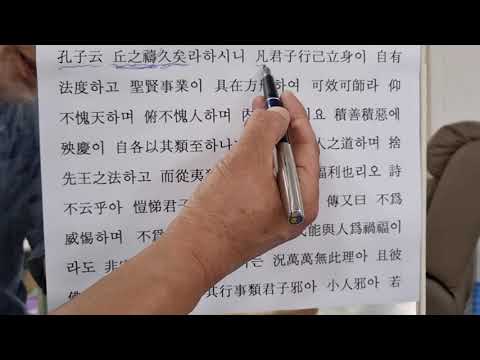 孔子云 丘之禱久矣라하시니 凡君子行己立身이 自有
法度하고 聖賢事業이 具在方 하여 可效可師라 仰
不愧天하며 俯不愧人하며 이요 積善積惡에
殃慶이 自各以其類至하나 人之道하며 捨
先王之法하고 而從夷 福利也리오 詩
不云乎아 愷悌君子 傳又曰 不爲
威惕하며 不 能與人爲禍福이
라도 非 는 況萬萬無此理아 且彼
其行事類君子邪아 小人邪아 若